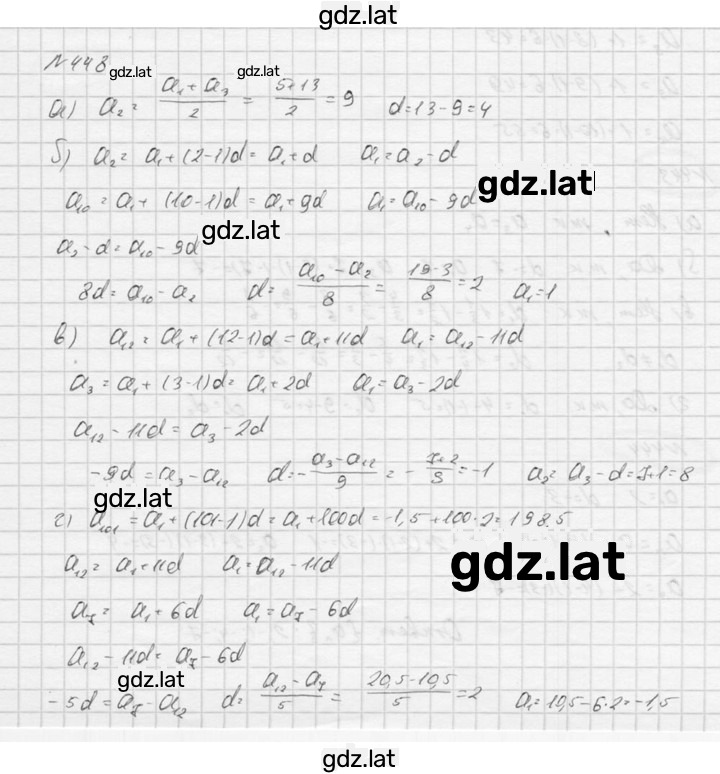 gdz.lat
№448 gdz.lat gdz.lat
а) a₂ = (a₁ + a₃)/2 = (5+13)/2 = 9 d = 13 - 9 = 4
б) a₂ = a₁ + (2-1)d = a₁ + d a₁ = a₂ - d
gdz.lat
a₁₀ = a₁ + (10-1)d = a₁ + 9d a₁ = a₁₀ - 9d
gdz.lat
a₂ - d = a₁₀ - 9d
8d = a₁₀ - a₂ d = (a₁₀ - a₂)/8 = (19-3)/8 = 2 a₁ = 1
в) a₁₂ = a₁ + (12-1)d = a₁ + 11d a₁ = a₁₂ - 11d
a₃ = a₁ + (3-1)d = a₁ + 2d a₁ = a₃ - 2d
a₁₂ - 11d = a₃ - 2d
-9d = a₃ - a₁₂ d = -(a₃ - a₁₂)/9 = -(7+2)/9 = -1 a₂ = a₃ - d = 7+1 = 8
gdz.lat
г) a₁₀₁ = a₁ + (101-1)d = a₁ + 100d = -1,5 + 100·2 = 198.5
a₁₂ = a₁ + 11d a₁ = a₁₂ - 11d
gdz.lat
a₇ = a₁ + 6d a₁ = a₇ - 6d
a₁₂ - 11d = a₇ - 6d
gdz.lat
-5d = a₇ - a₁₂ d = (a₁₂ - a₇)/5 = (20,5-10,5)/5 = 2 a₁ = 10,5 - 6·2 = -1,5
gdz.lat